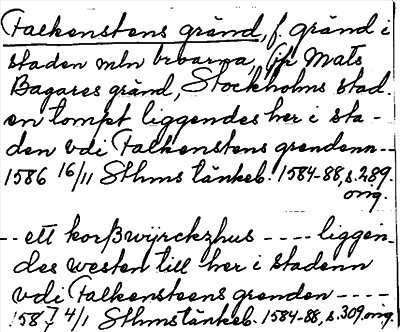 Falkenstens gränd, f. gränd i
staden mln broarna, jfr Mats
Bagares gränd, Stockholms stad.
en tompt liggendes her i sta-
den vdi Falkenstens grendenn --
1586 16/11 Sthms tänkeb. 1584-88, s. 289.
orig.
-- ett korßwijrckzhus ---- liggen-
des westen till her i stadenn
vdi Falkensteens grenden ----
1587 4/1 Sthms tänkeb. 1584-88, s. 309. orig.